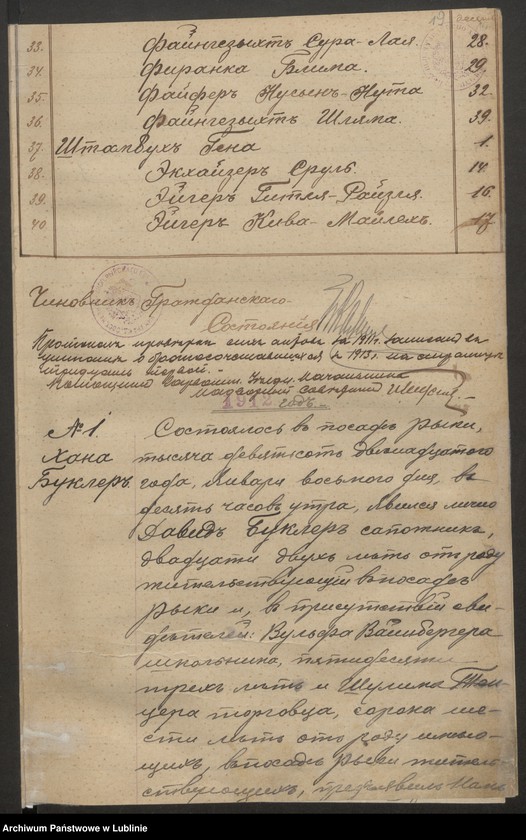 19
33. Файнгезыхтъ Сура-Лая. 28.
34. Фиранка Блима. 29.
35. Файферъ Нусынъ-Нута 32.
36. Файнгезыхтъ Шляма. 39.
37. Штамбухъ Гена 1.
38. Экхайзеръ Сруль. 14.
39. Эйгеръ Гитля-Файзля. 16.
40 Эйгеръ Кива-Майлехъ. 17
Чиновникъ Гражданскаго
Состоянія
1912 годъ.
№ 1. Состоялось въ посадѣ Рыки,
Хана тысяча девятьсотъ двѣнадцатаго
Буклеръ. года, Января восьмого дня, въ
десять часовъ утра, явился лично
Давидъ Буклеръ сапожникъ,
двадцати двухъ лѣтъ отъ роду
жительствующій въ посадѣ
Рыки и, въ присутствіи сви-
дѣтелей: Вульфа Вайнбергера
школьника, пятидесяти
трехъ лѣтъ и Шулима Тан-
цера торговца, сорока ше-
сти лѣтъ отъ роду имѣю-
щихъ, въ посадѣ Рыки житель-
ствующихъ, предъявилъ Намъ
Archiwum Państwowe w Lublinie